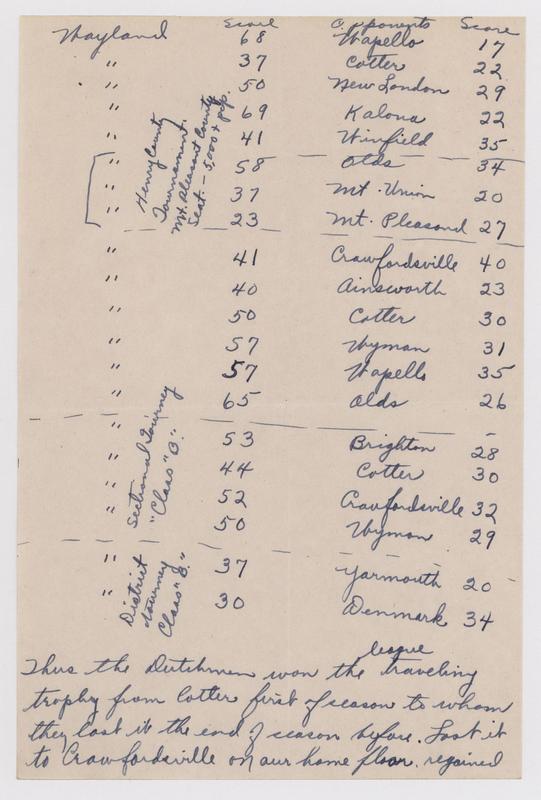 Score Opponents Score
Wayland 68 Wapello 17
" 37 Cotter 22
" 50 New London 29
" 69 Kalona 22
" 41 Winfield 35
Henry County
Tournament.
Mt. Pleasant County
Seat. - 5,000 + pop.
" 58 Olds 34
" 37 Mt. Union 20
" 23 Mt. Pleasand 27
" 41 Crawfordsville 40
" 40 Ainsworth 23
" 50 Cotter 30
" 57 Wyman 31
" 57 Wapello 35
" 65 Olds 26
Sectional Tourney
"Class "B."
" 53 Brighton 28
" 44 Cotter 30
" 52 Crawfordsville 32
" 50 Wyman 29
District
tourney
Class "B."
" 37 Yarmouth 20
" 30 Denmark 34
league
Thus the Dutchmen won the traveling
trophy from Cotter first of season to whom
they lost it the end of season before. Lost it
to Crawfordsville on our home floor. regained